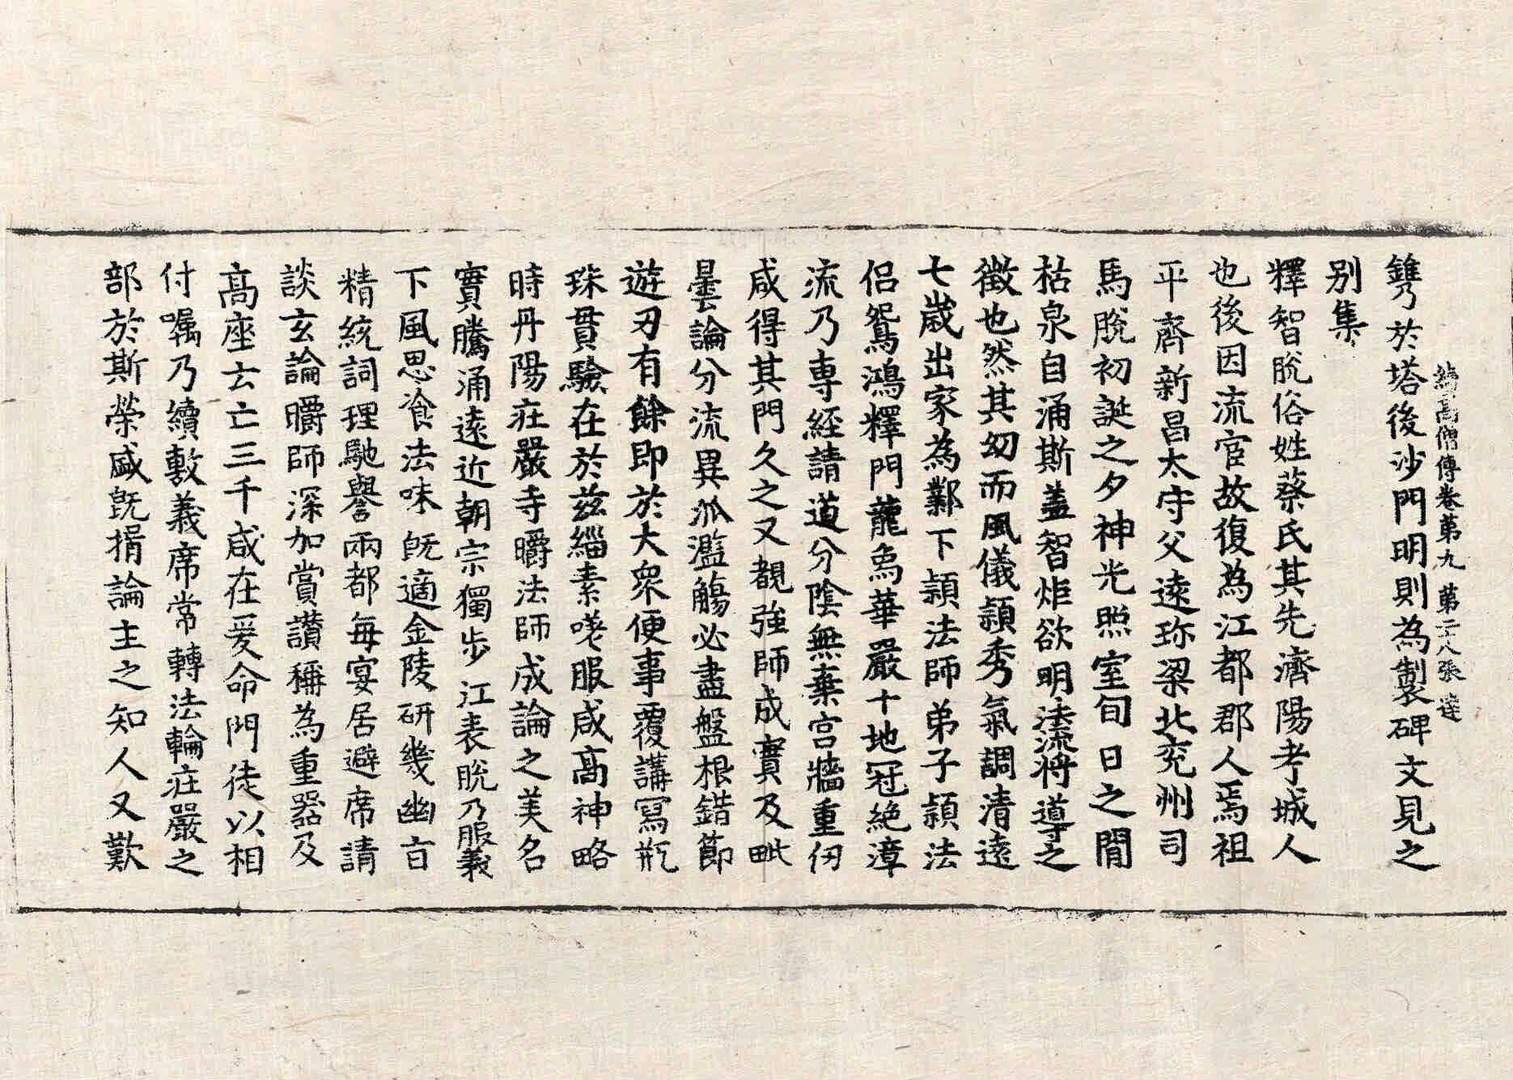 續高僧傳卷第九 第二十八張 達
鐫於塔後沙門明則為製碑文見之
別集
釋智脫俗姓蔡氏其先濟陽考城人
也後因流宦故復為江都郡人焉祖
平齊新昌太守父遠珎梁北兖州司
馬脫初誕之夕神光照室旬日之閒
枯泉自涌斯盖智炬欲明法流將導之
徵也然其幼而風儀穎秀氣調清遠
七歲出家為鄴下穎法師弟子穎法
侣鴛鴻釋門龍象華嚴十地冠絕漳
流乃專經請道分陰無棄宮牆重仞
咸得其門久之又覩強師成實及毗
曇論分流異泒濫觴必盡盤根錯節
遊刃有餘即於大衆便事覆講寫瓶
珠貫驗在於茲緇素嗟服咸高神略
時丹陽莊嚴寺㬭法師成論之美名
實騰涌遠近朝宗獨步江表脫乃服義
下風思飡法味旣適金陵研幾幽旨
精統詞理馳譽兩都每宴居避席請
談玄論㬭師深加賞讚稱為重器及
高座云亡三千咸在爰命門徒以相
付囑乃續敷義席常轉法輪莊嚴之
部於斯榮盛旣捐論主之知人又歎